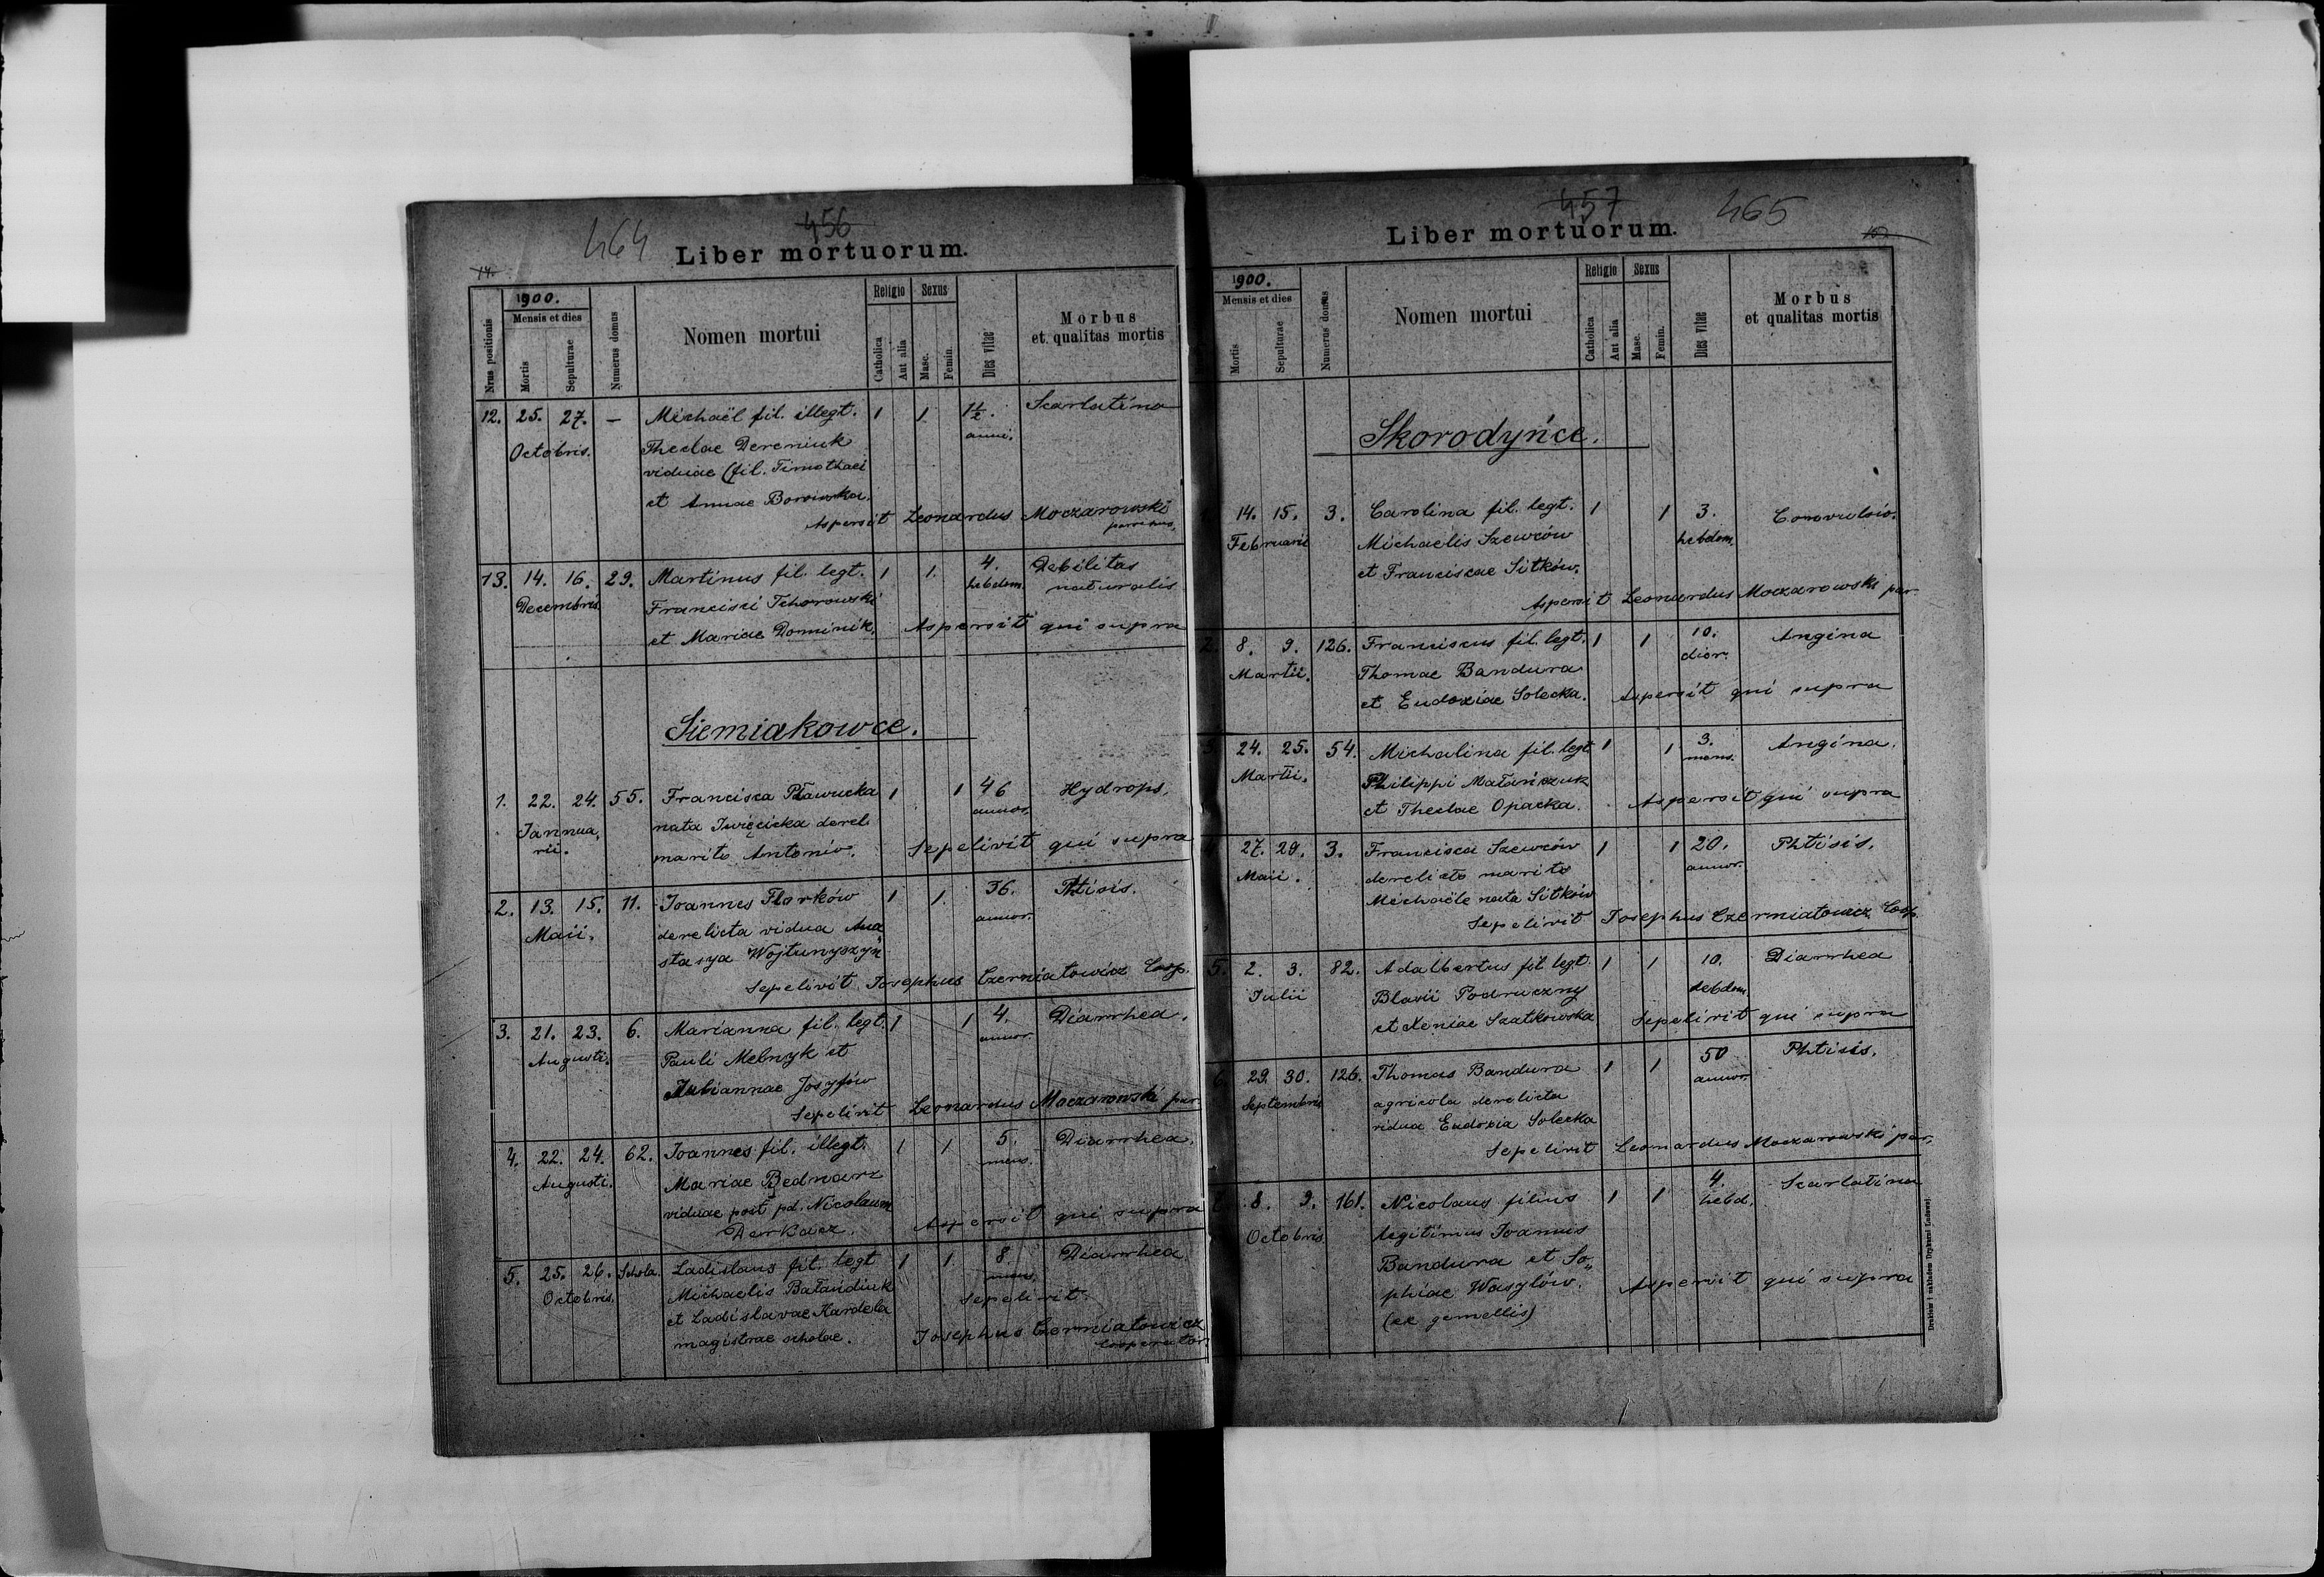 464 456
Liber mortuorum.
14.
Nrus positionis
1900.
Mensis et dies
Mortis
Sepulturae
Numerus domus
Nomen mortui
Religio
Catholica
Aut alia
Sexus
Masc.
Femin.
Dies vitae
Morbus
et qualitas mortis
12. 25. 27. — Michaël fil. illegt. 1 1 1½. Scarlatina
Octobris. Theclae Dereniuk anni.
viduae (fil. Timothaei
et Annae Borowska.
Aspersit Leonardus Moczarowski
parochus.
13. 14. 16. 29. Martinus fil. legt. 1 1. 4. Debilitas
Decembris Francisci Tchorowski hebdom. naturalis
et Mariae Dominik. Aspersit qui supra
Siemiakowce.
1. 22. 24. 55. Francisca Pławucka 1 1 46 Hydrops.
Jannua, nata Iwięcicka derel. annor.
rii. marito Antonio. Sepelivit qui supra
2. 13. 15. 11. Joannes Florków 1 1. 36. Phtisis.
Maii. derelicta vidua Ana annor.
stasya Wojtunyszyn
Sepelivit Josephus Czerniatowicz Coop.
3. 21. 23. 6. Marianna fil. legt. 1 1 4. Diarrhea.
Augusti. Pauli Melnyk et annor.
Juliannae Josyfów
Sepelivit Leonardus Moczarowski par
4. 22. 24. 62. Joannes fil. illegt. 1 1 5. Diarrhea.
Augusti. Mariae Bednarz mens.
viduae post pd. Nicolaum
Derkacz. Aspersit qui supra
5. 25. 26. Schola. Ladislaus fil. legt 1 1. 8 Diarrhea
Octobris. Michaelis Bałandiuk mens.
et Ladislavae Kardela Sepelivit
magistrae scholae. Josephus Czerniatowicz
Cooperator.
457 465
Liber mortuorum.
1900.
Mensis et dies
Mortis
Sepulturae
Numerus domus
Nomen mortui
Religio
Catholica
Aut alia
Sexus
Masc.
Femin.
Dies vitae
Morbus
et qualitas mortis
Skorodyńce.
14. 15. 3. Carolina fil. legt. 1 1 3. Convulsio.
Februarii Michaelis Szewców hebdom.
et Franciscae Sitków.
Aspersit Leonardus Moczarowski par
2. 8. 9. 126. Franciscus fil. legt. 1 1 10. Angina
Martii. Thomae Bandura dier.
et Eudoxiae Solecka. Aspersit qui supra
3. 24. 25. 54. Michalina fil. legt 1 1 3. Angina.
Martii. Philippi Matańczuk mens.
et Theclae Opacka. Aspersit qui supra
27. 29. 3. Francisca Szewców 1 1 20. Phtisis.
Maii. derelicto marito annor.
Michaële nata Sitków
Sepelivit Josephus Czerniatowicz Coop.
5. 2. 3. 82. Adalbertus fil legt. 1 1 10. Diarrhea
Julii Blasii Podruczny debdom.
et Xeniae Szatkowska Sepelivit qui supra
6. 29. 30. 126. Thomas Bandura 1 1 50 Phtisis.
Septembris agricola derelicta annor.
vidua Eudoxia Solecka
Sepelivit Leonardus Moczarowski par.
7. 8. 9. 161. Nicolaus filius 1 1 4. Scarlatina
Octobris legitimus Joannis hebd.
Bandura et So„
phiae Wasylów. Aspersit qui supra
(ex gemellis)
Drukiem i nakładem Drukarni Ludowej.